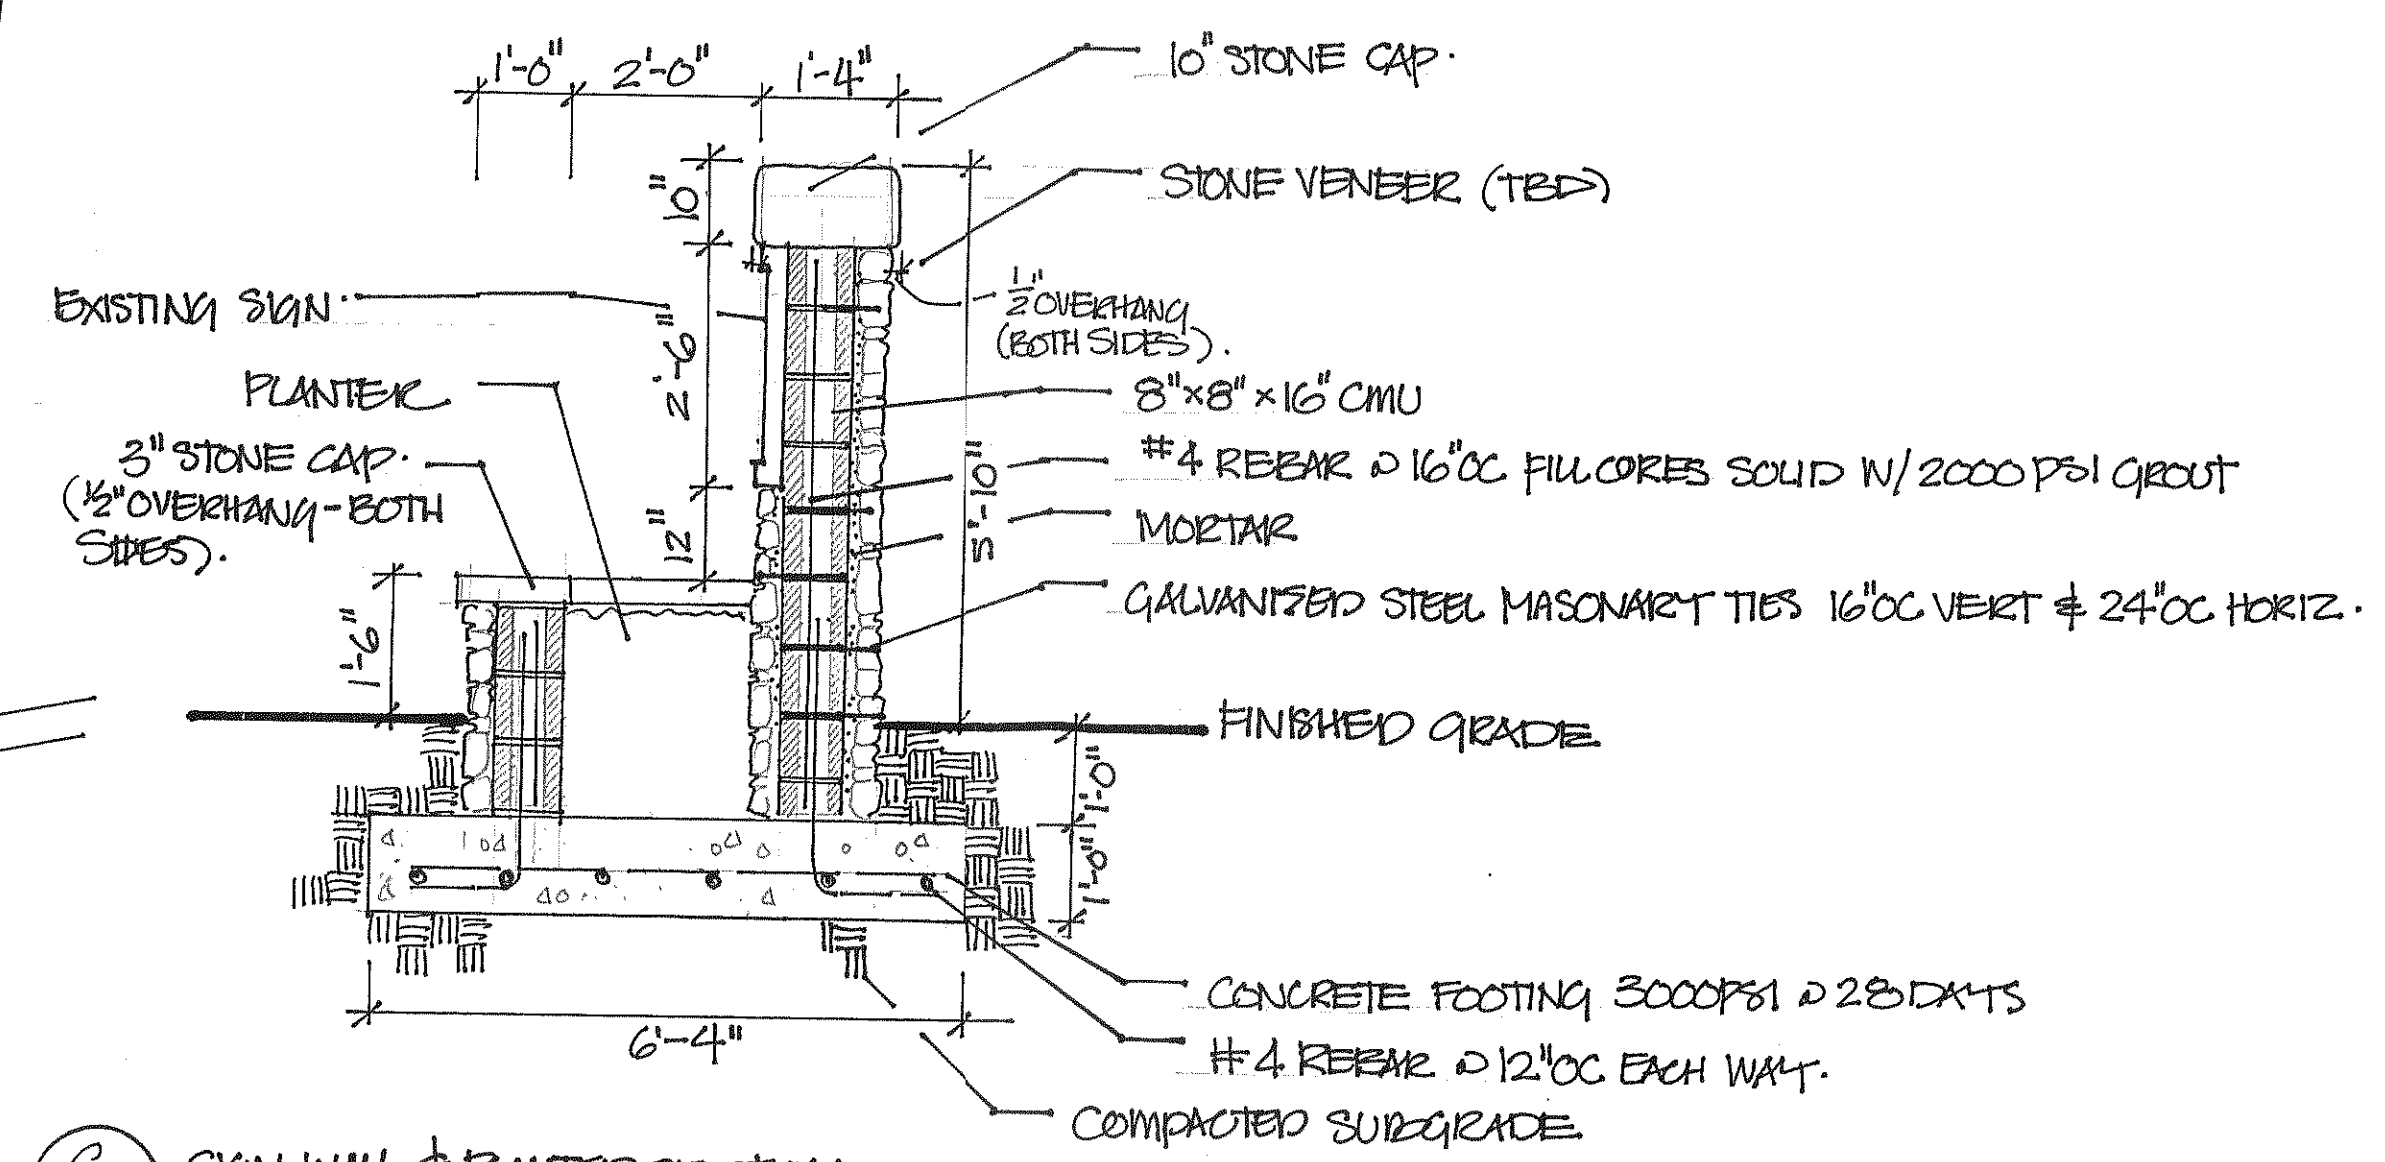 1'-0" 2'-0" 1'-4"
10" STONE CAP.
10"
STONE VENEER (TBD)
EXISTING SIGN.
2'-6"
1/2" OVERHANG
(BOTH SIDES).
PLANTER
8"x8"x16" CMU
3" STONE CAP.
(1/2" OVERHANG - BOTH
SIDES).
#4 REBAR @ 16"OC FILL CORES SOLID W/ 2000 PSI GROUT
12"
5'-10"
MORTAR
GALVANIZED STEEL MASONARY TIES 16"OC VERT & 24"OC HORIZ.
1'-6"
FINISHED GRADE
1'-0"
1'-0"
CONCRETE FOOTING 3000PSI @ 28 DAYS
6'-4"
#4 REBAR @ 12"OC EACH WAY.
COMPACTED SUBGRADE